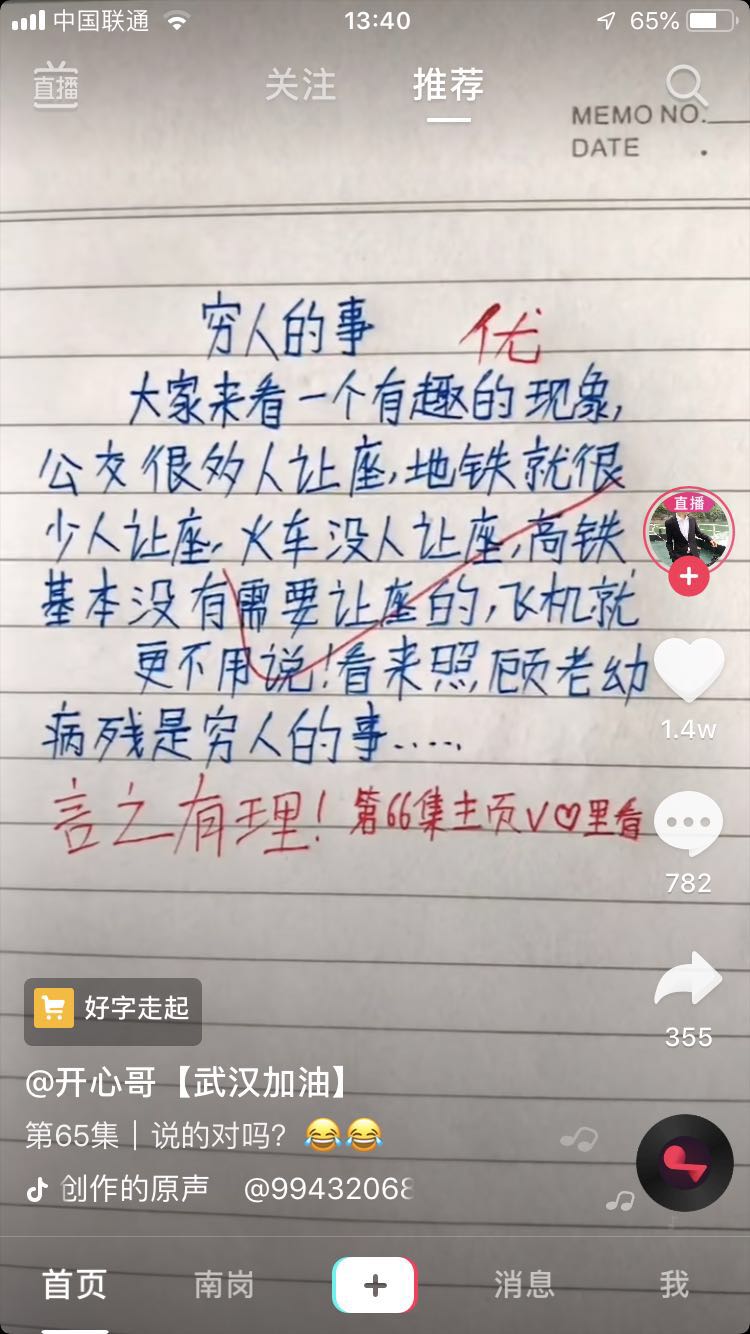 中国联通
13:40
65%
直播
关注
推荐
MEMO NO.
DATE
穷人的事
优
大家来看一个有趣的现象,
公交很多人让座,地铁就很
少人让座,火车没人让座,高铁
基本没有需要让座的,飞机就
更不用说!看来照顾老幼
病残是穷人的事.....
言之有理!
第66集主页V♡里看
直播
1.4w
782
355
好字走起
@开心哥【武汉加油】
第65集｜说的对吗？😂😂
创作的原声 @99432068
首页
南岗
消息
我